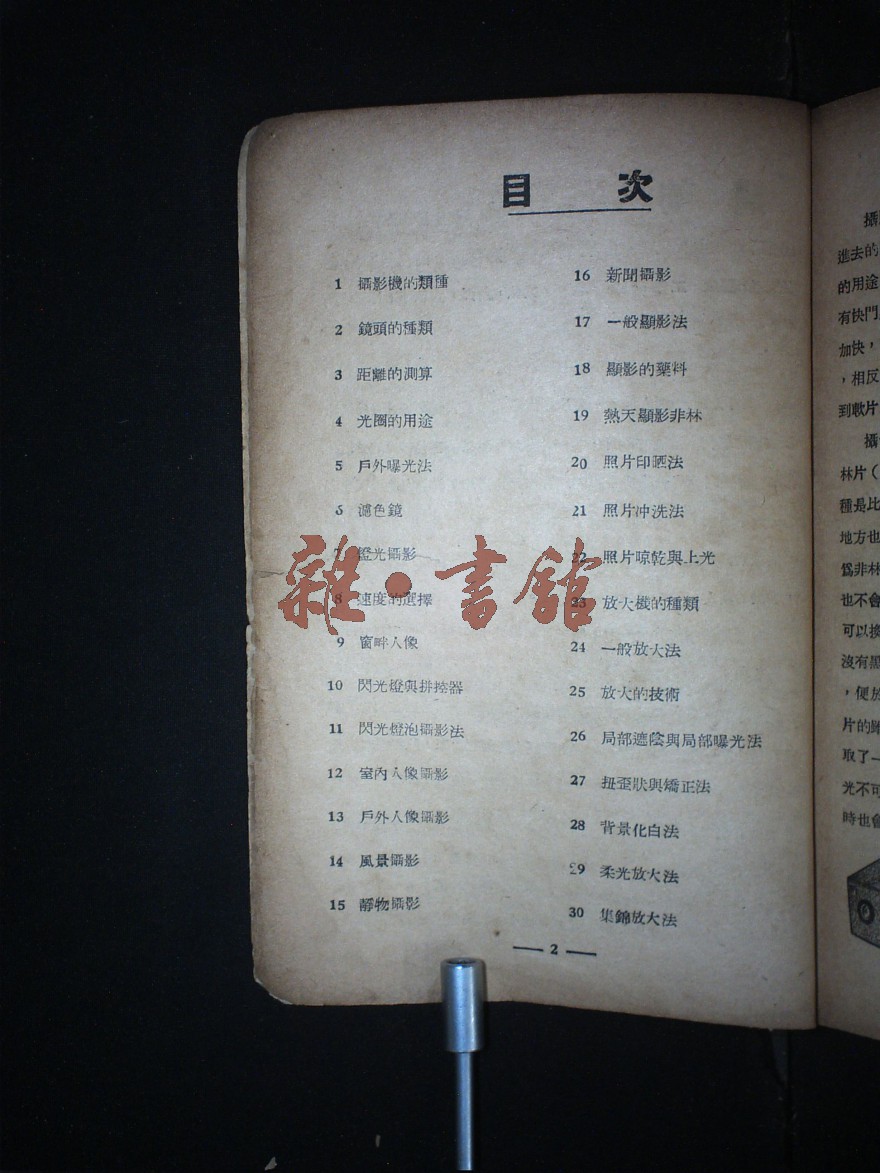 目 次
1 攝影機的類種
2 鏡頭的種類
3 距離的測算
4 光圈的用途
5 戶外曝光法
6 濾色鏡
7 燈光攝影
8 速度的選擇
9 窗畔人像
10 閃光燈與排控器
11 閃光燈泡攝影法
12 室內人像攝影
13 戶外人像攝影
14 風景攝影
15 靜物攝影
16 新聞攝影
17 一般顯影法
18 顯影的藥料
19 熱天顯影非林
20 照片印晒法
21 照片冲洗法
22 照片晾乾與上光
23 放大機的種類
24 一般放大法
25 放大的技術
26 局部遮陰與局部曝光法
27 扭歪狀與矯正法
28 背景化白法
29 柔光放大法
30 集錦放大法
— 2 —
雜·書館
攝
進去的
的用途
有快門
加快，
，相反
到軟片
攝
林片（
種是比
地方也
爲非林
也不會
可以換
沒有黑
，便於
片的
取了一
光不可
時也會